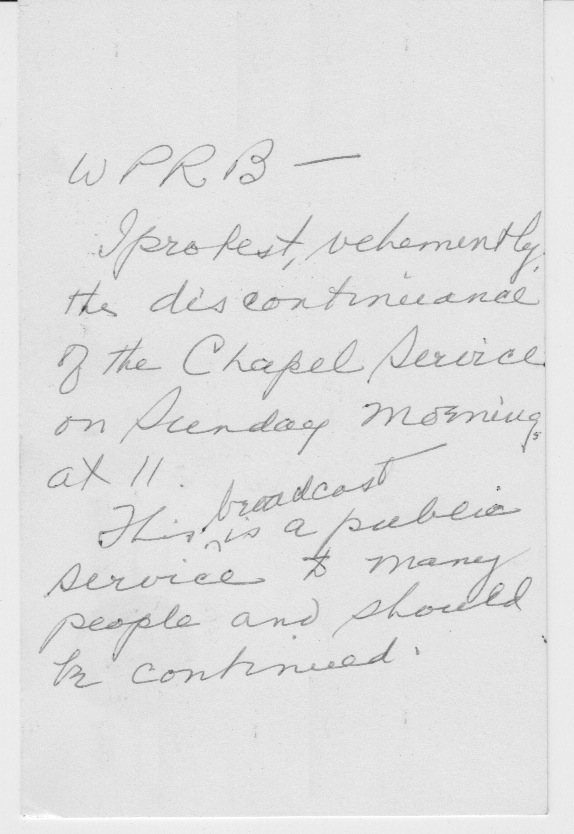 WPRB —
I protest, vehemently,
the discontinuance
of the Chapel Service
on Sunday Morning,
at 11.
This broadcast is a public
service to many
people and should
be continued.